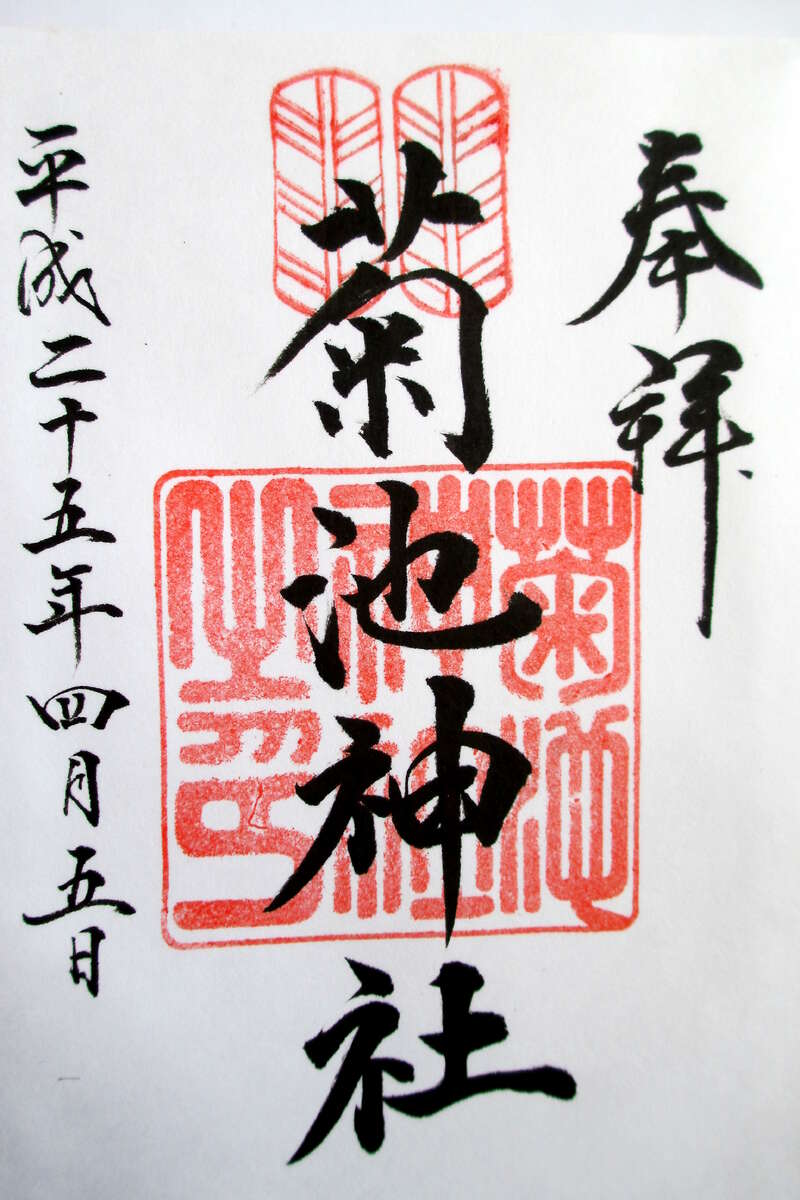 奉拝
菊池神社
菊池
神社
之印
平成二十五年四月五日